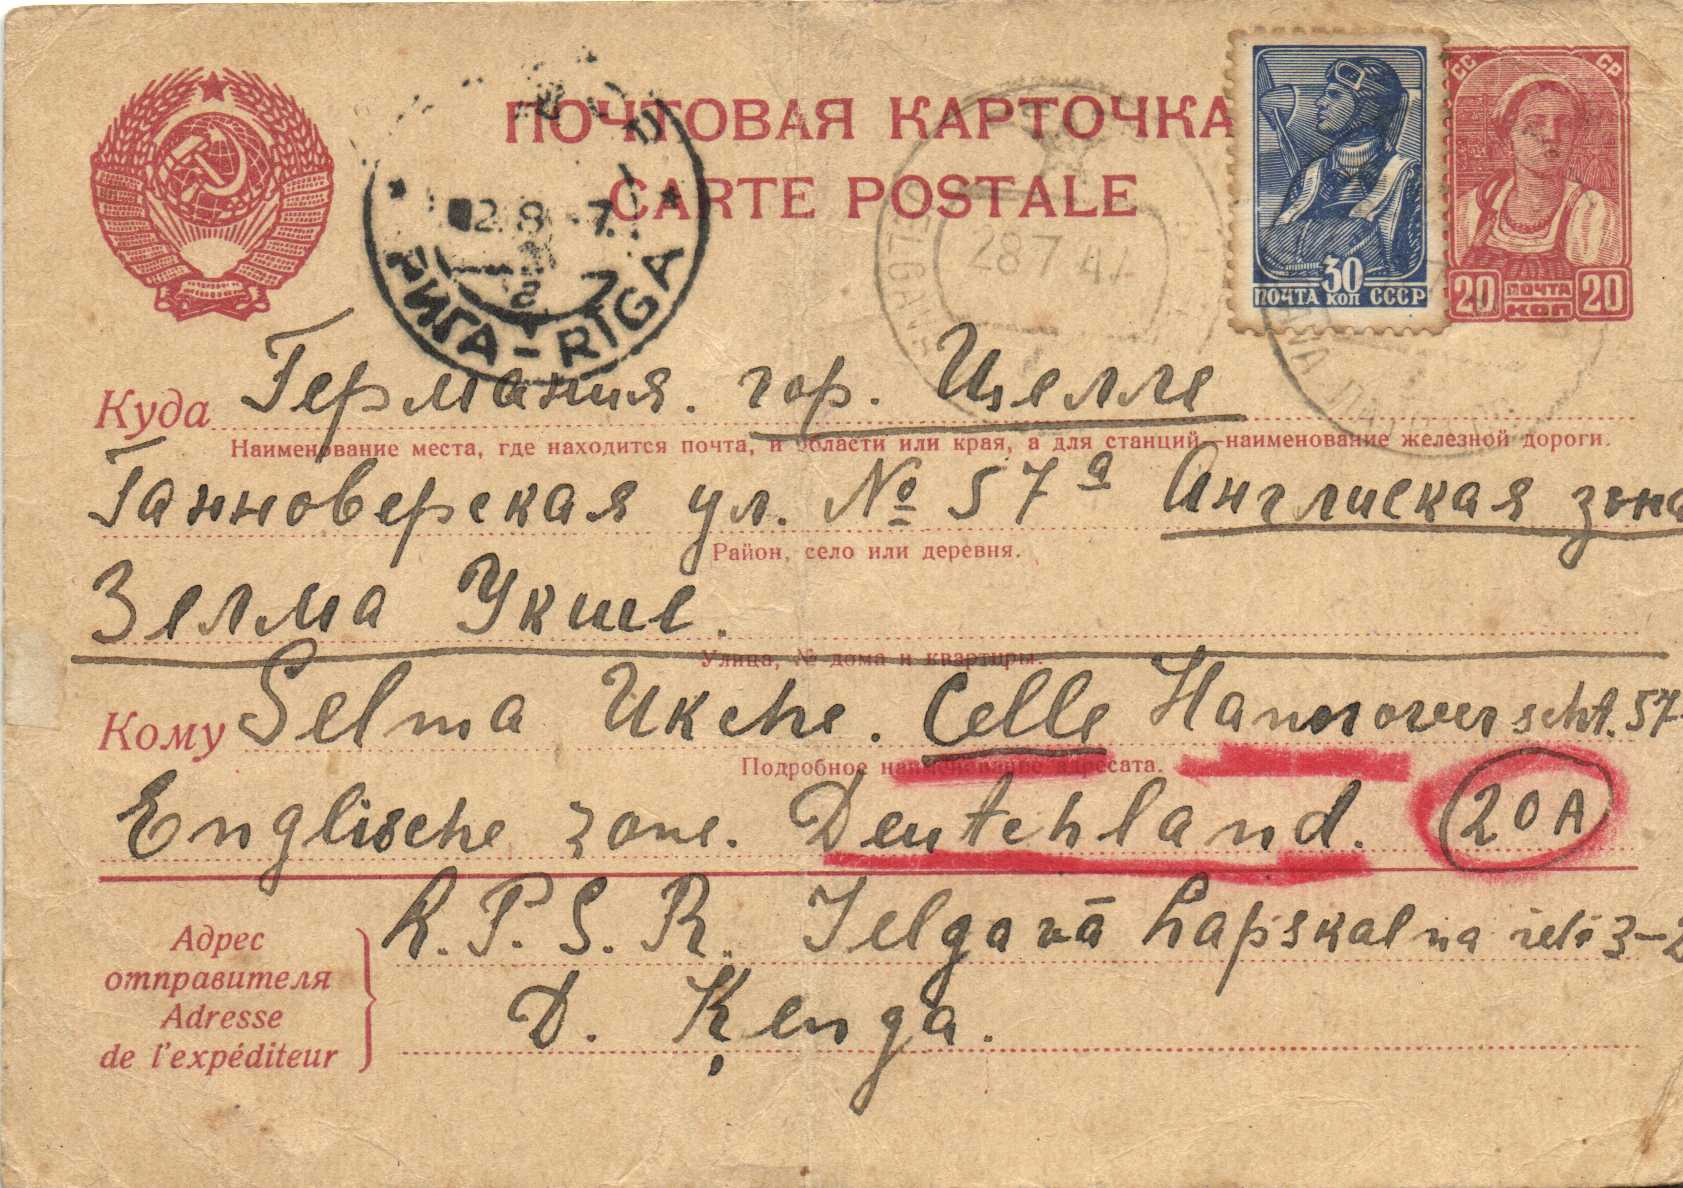 ПОЧТОВАЯ КАРТОЧКА
CARTE POSTALE
СС СР
30
ПОЧТА КОП СССР
20 ПОЧТА КОП 20
РИГА-RIGA
28 7 47
Куда Германия. гор. Целле
Наименование места, где находится почта, и области или края, а для станций—наименование железной дороги.
Ганноверская ул. № 57а Англиская зона
Район, село или деревня.
Зелма Укше.
Улица, № дома и квартиры.
Кому Selma Ukche. Celle Hannoverscht. 57
Подробное наименование адресата.
Englische zone. Deutchland. 20A
Адрес отправителя
Adresse de l'expéditeur
L.P.S.R. Jelgavā Lapskalna ielā 3-2
D. Ķenga.